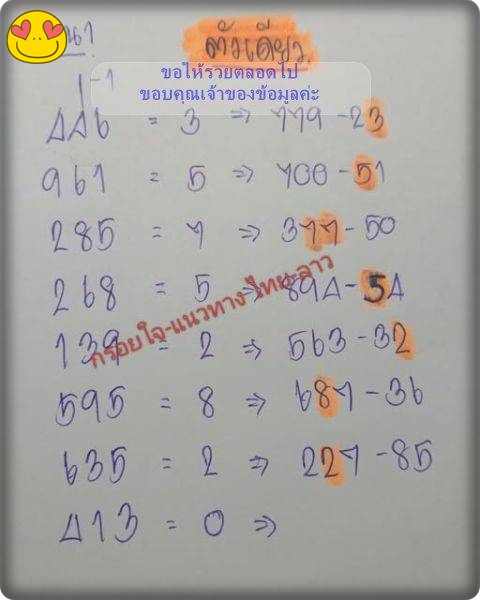 ตัวเดียว
ขอให้รวยตลอดไป
ขอบคุณเจ้าของข้อมูลค่ะ
446 = 3 => 779-23
961 = 5 => 700-51
285 = 7 => 377-50
268 = 5 => 894-54
139 = 2 => 563-32
595 = 8 => 687-36
635 = 2 => 227-85
413 = 0 =>
กรอยใจ-แนวทาง-ไทย-ลาว